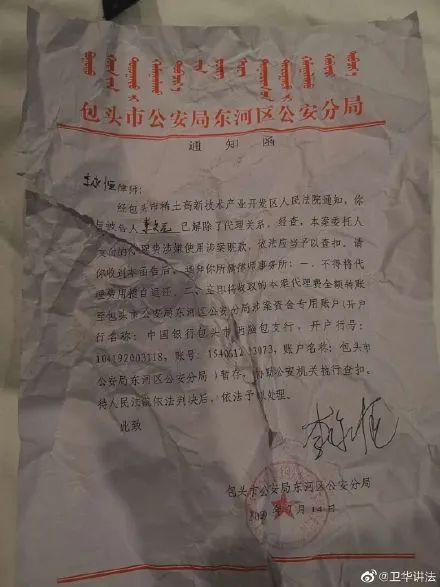 包头市公安局东河区公安分局
通知函
律师：
经包头市稀土高新技术产业开发区人民法院通知，你
与被告人 已解除了代理关系。经查，本案委托人
支付的代理费涉嫌使用涉案赃款，依法应当予以查扣。请
你收到本函告后，通知你所属律师事务所：一、不得将代
理费用擅自退还。二、立即将收取的本案代理费全额转账
至包头市公安局东河区公安分局涉案资金专用账户（开户
行名称：中国银行包头市 包支行，开户行号：
104192003118，账号：1540612 3073，账户名称：包头市
公安局东河区公安分局）暂存，协助公安机关执行查扣。
待人民法院依法判决后，依法予以处理。
此致
包头市公安局东河区公安分局
月14日
@卫华讲法